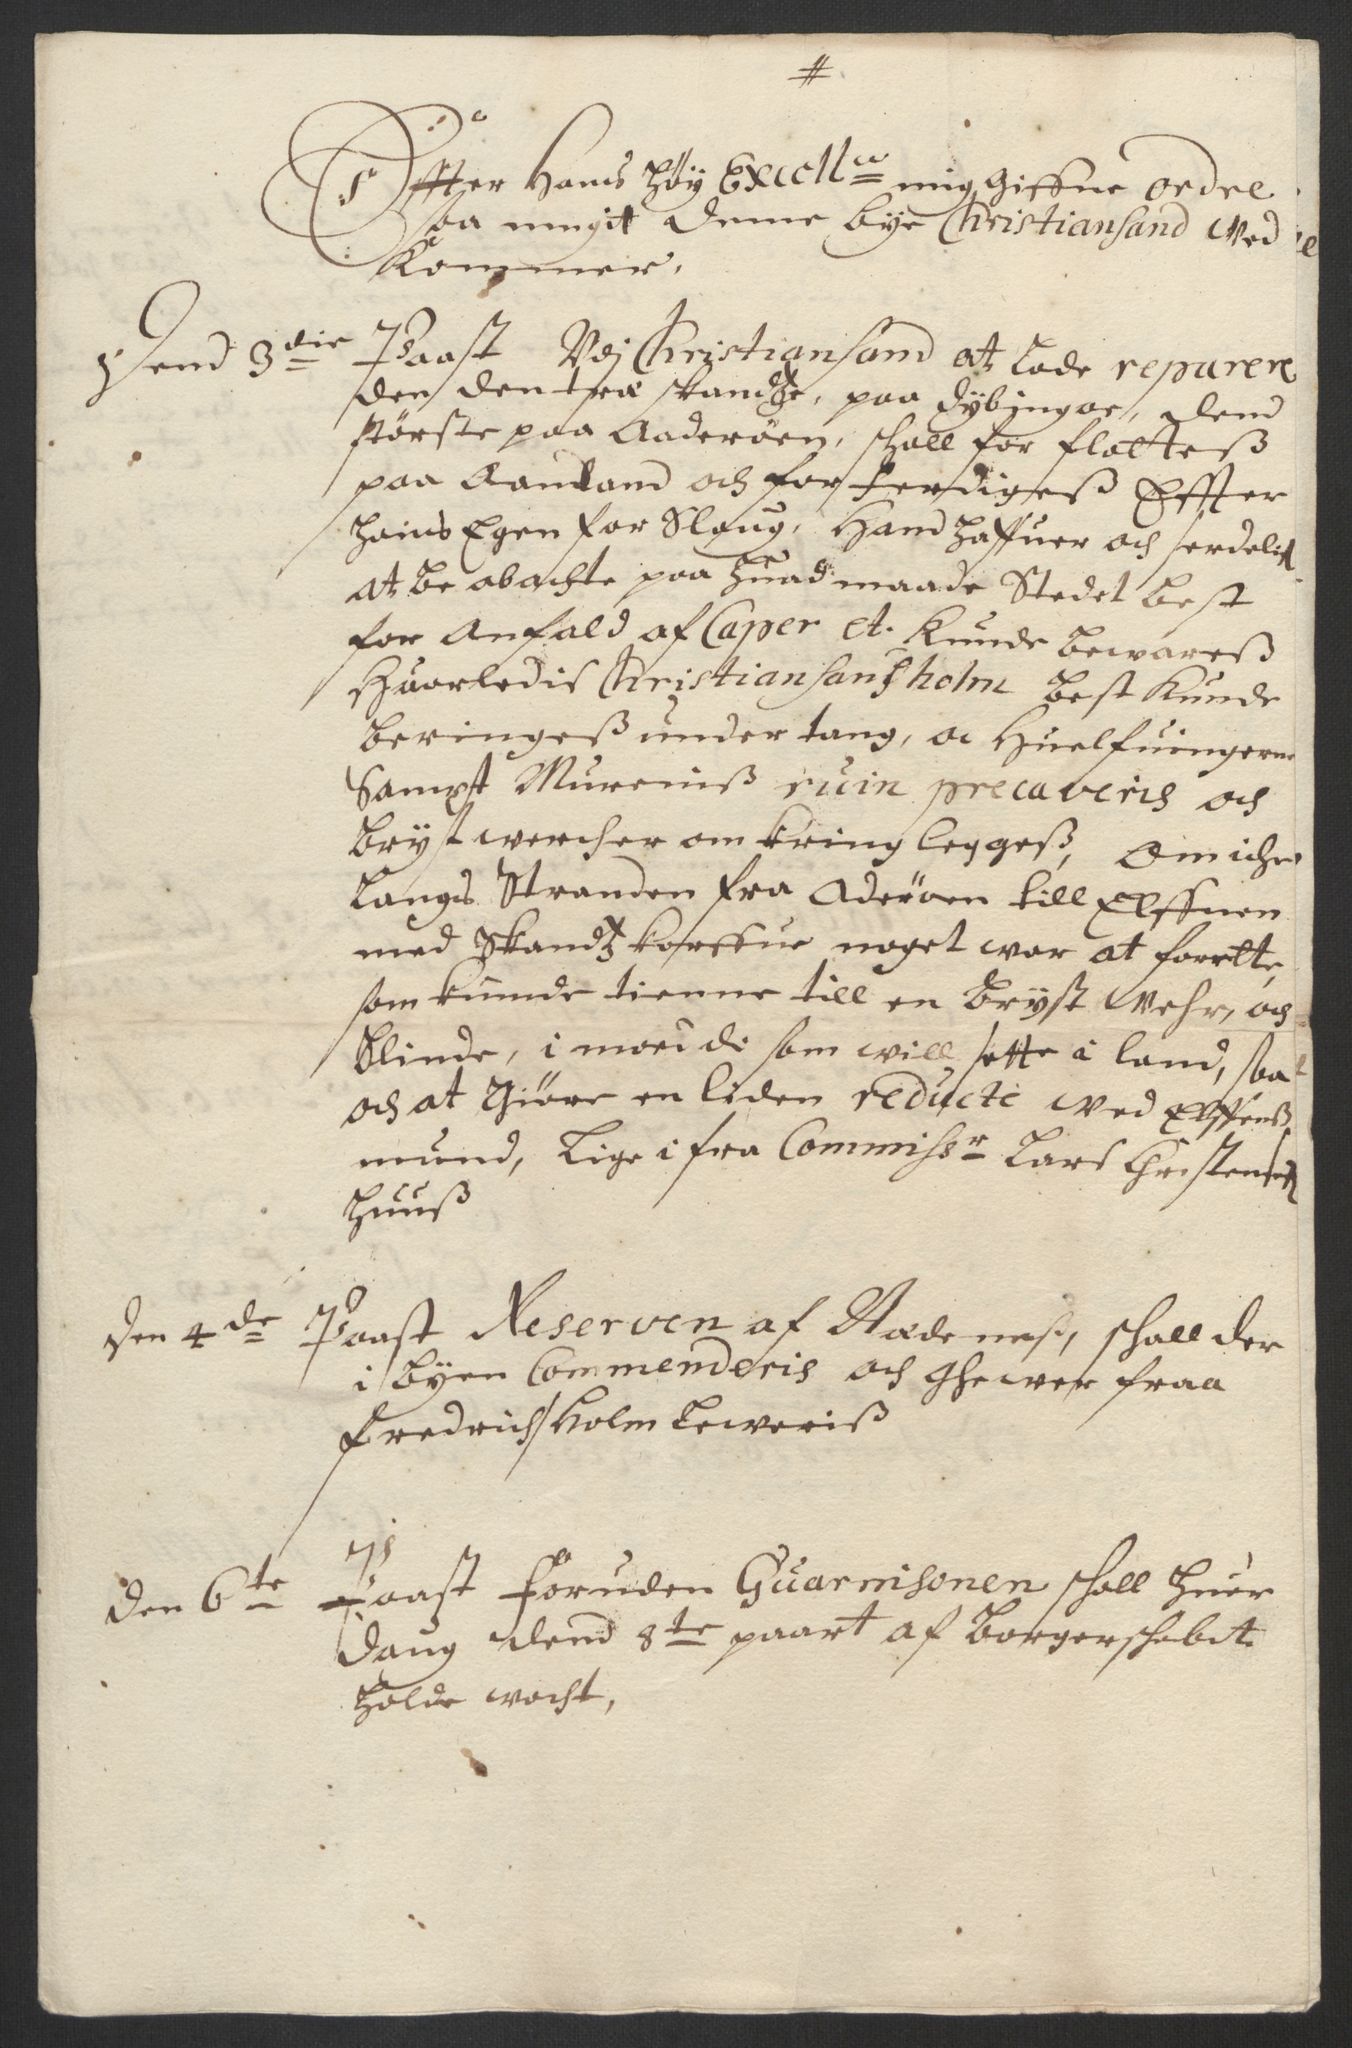 #
Effter Hans Höÿ Excell:ce mig Giffne ordre
saa megit denne bÿe Christiansand Ved
Kommer,
Dend 3die Paast Vdj Christiansand at Lade reparere
den den træ skandtze, paa Dÿbingae, dend
største paa Aaderöen, schall for fløtteß
paa land och forferdigeß Effter
hans Egen for Slaug, Hand haffuer och serdelist
at be obachte paa huad maade Stedet best
for Anfald af Caper et. Kunde bewareß
Huorledis Christiansansholm best Kunde
beringeß under tang, oc Huelfuingerne
Sampt Mureniß ruin precaveris och
Brÿst wercher om kring leggeß, Om iche
Langs Stranden fra Oderöen till Elffuen
med Skandtz korffue noget war at forrette,
som kunde tienne till en Brÿst Wehr, och
Blinde, i moed di som will sette i land, saa
och at Giöre en liden reducte wed Elffens
mund, Lige i fra Commiss:r Lars Christensens
Huuß
Den 4de Paast Reserven af Nædeneß, schall der
i Bÿen Commenderis och Ghewer fraa
Fredrichsholm Leweriß
Den 6te Paast Foruden Guarnisonen schall huer
Daug dend 8te paart af Borgerschabet
Holde wacht,